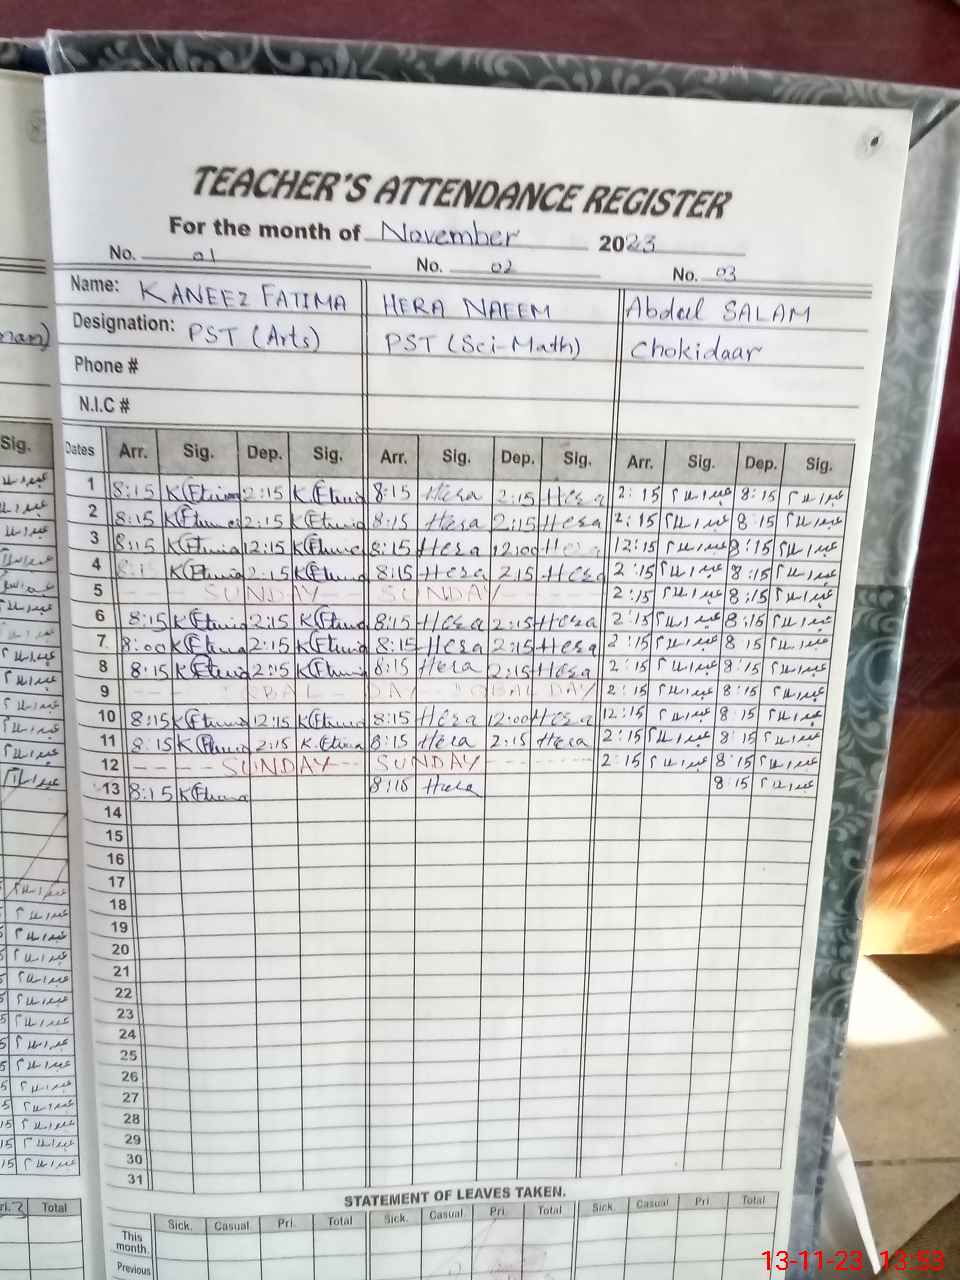 TEACHER'S ATTENDANCE REGISTER
For the month of November 2023
No. 01 No. 02 No. 03
Name: KANEEZ FATIMA HERA NAEEM Abdul SALAM
Designation: PST (Arts) PST (Sci-Math) Chokidaar
Phone #
N.I.C #
Sig. Dates Arr. Sig. Dep. Sig. Arr. Sig. Dep. Sig. Arr. Sig. Dep. Sig.
1 8:15 2:15 8:15 Hera 2:15 Hera 2:15 عبدالسلام 8:15 عبدالسلام
2 8:15 2:15 8:15 Hera 2:15 Hera 2:15 عبدالسلام 8:15 عبدالسلام
3 8:15 12:15 8:15 Hera 12:00 Hera 12:15 عبدالسلام 8:15 عبدالسلام
4 8:15 2:15 8:15 Hera 2:15 Hera 2:15 عبدالسلام 8:15 عبدالسلام
5 SUNDAY SUNDAY 2:15 عبدالسلام 8:15 عبدالسلام
6 8:15 2:15 8:15 Hera 2:15 Hera 2:15 عبدالسلام 8:15 عبدالسلام
7 8:00 2:15 8:15 Hera 2:15 Hera 2:15 عبدالسلام 8:15 عبدالسلام
8 8:15 2:15 8:15 Hera 2:15 Hera 2:15 عبدالسلام 8:15 عبدالسلام
9 IQBAL DAY IQBAL DAY 2:15 عبدالسلام 8:15 عبدالسلام
10 8:15 12:15 8:15 Hera 12:00 Hera 12:15 عبدالسلام 8:15 عبدالسلام
11 8:15 2:15 8:15 Hera 2:15 Hera 2:15 عبدالسلام 8:15 عبدالسلام
12 SUNDAY SUNDAY 2:15 عبدالسلام 8:15 عبدالسلام
13 8:15 8:15 Hera 8:15 عبدالسلام
14
15
16
17
18
19
20
21
22
23
24
25
26
27
28
29
30
31
STATEMENT OF LEAVES TAKEN.
Total Sick. Casual Pri. Total Sick. Casual. Pri. Total Sick. Casual Pri. Total
This month.
Previous
13-11-23 13:53